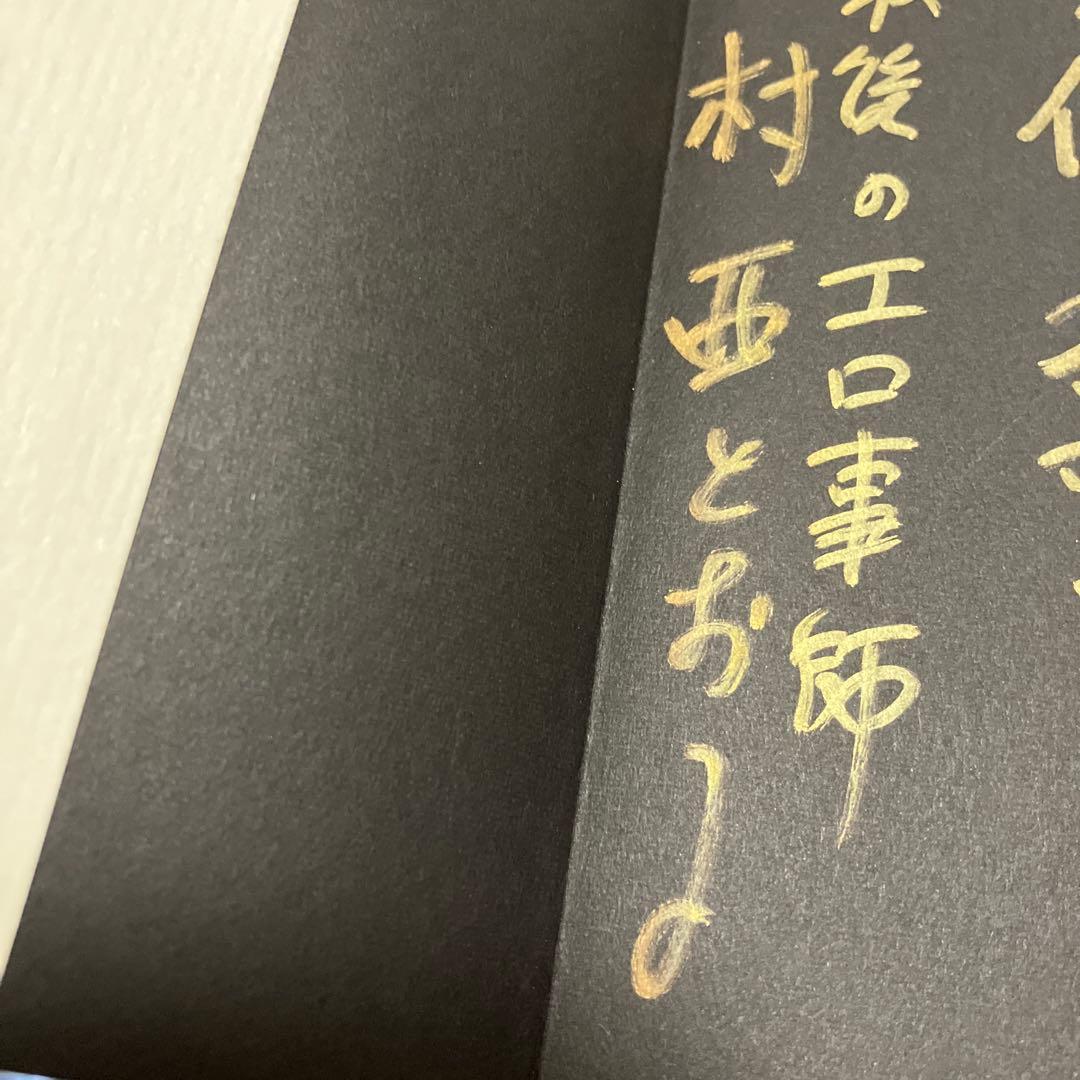 後のエロ事師
村西とおる